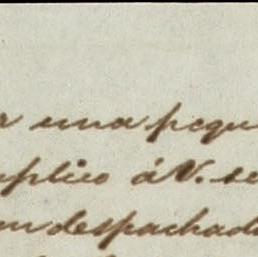 una pequ
uplico á V. se
en despachad